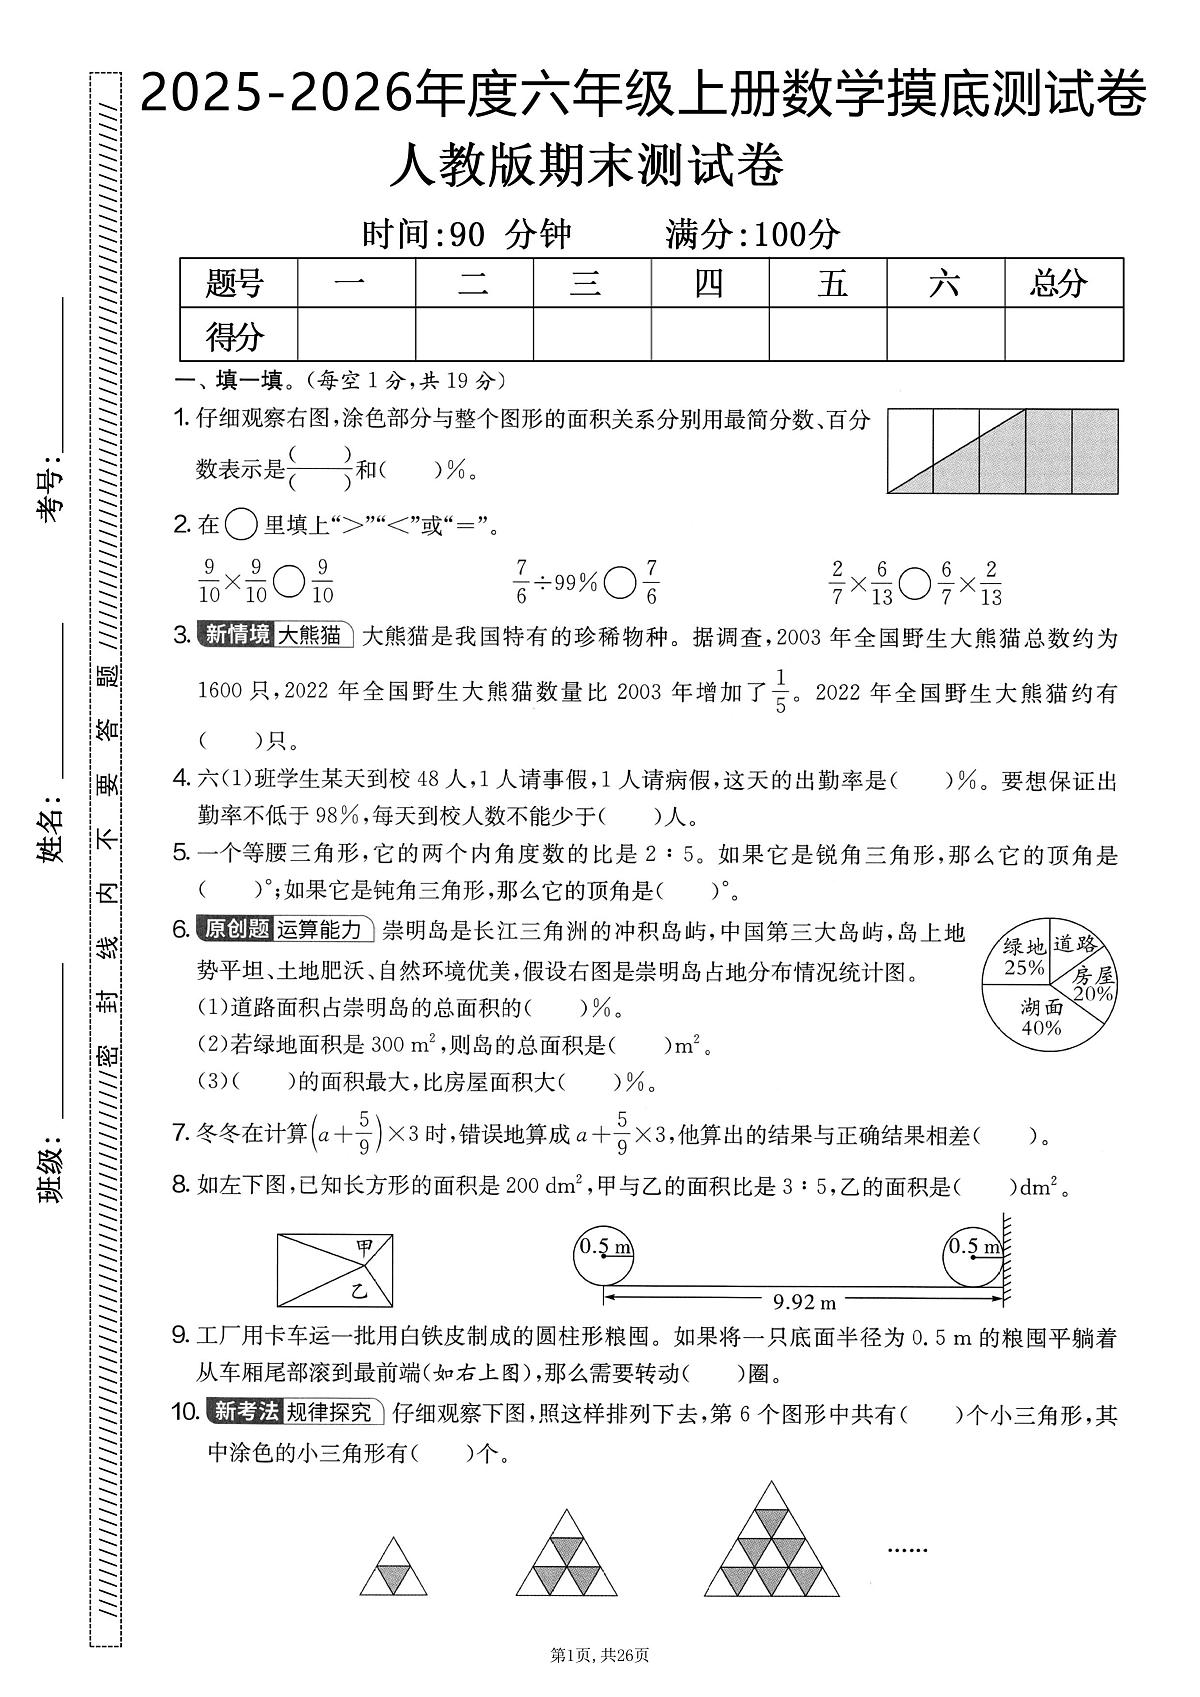 2025-2026年度六年级上册数学摸底测试卷
人教版期末测试卷
时间:90 分钟 满分:100分
题号 一 二 三 四 五 六 总分
得分
一、填一填。(每空1分,共19分)
1. 仔细观察右图,涂色部分与整个图形的面积关系分别用最简分数、百分
数表示是( )/( )和( )%。
2. 在○里填上“>”“<”或“=”。
9/10×9/10○9/10 7/6÷99%○7/6 2/7×6/13○6/7×2/13
3. 新情境 大熊猫 大熊猫是我国特有的珍稀物种。据调查,2003 年全国野生大熊猫总数约为
1600 只,2022 年全国野生大熊猫数量比 2003 年增加了1/5。2022 年全国野生大熊猫约有
( )只。
4. 六(1)班学生某天到校 48 人,1 人请事假,1 人请病假,这天的出勤率是( )%。要想保证出
勤率不低于 98%,每天到校人数不能少于( )人。
5. 一个等腰三角形,它的两个内角度数的比是 2∶5。如果它是锐角三角形,那么它的顶角是
( )°;如果它是钝角三角形,那么它的顶角是( )°。
6. 原创题 运算能力 崇明岛是长江三角洲的冲积岛屿,中国第三大岛屿,岛上地
势平坦、土地肥沃、自然环境优美,假设右图是崇明岛占地分布情况统计图。
(1)道路面积占崇明岛的总面积的( )%。
(2)若绿地面积是 300 m²,则岛的总面积是( )m²。
(3)( )的面积最大,比房屋面积大( )%。
绿地
25%
道路
房屋
20%
湖面
40%
7. 冬冬在计算(a+5/9)×3时,错误地算成 a+5/9×3,他算出的结果与正确结果相差( )。
8. 如左下图,已知长方形的面积是 200 dm²,甲与乙的面积比是 3∶5,乙的面积是( )dm²。
甲
乙
0.5 m
0.5 m
9.92 m
9. 工厂用卡车运一批用白铁皮制成的圆柱形粮囤。如果将一只底面半径为 0.5 m 的粮囤平躺着
从车厢尾部滚到最前端(如右上图),那么需要转动( )圈。
10. 新考法 规律探究 仔细观察下图,照这样排列下去,第 6 个图形中共有( )个小三角形,其
中涂色的小三角形有( )个。
……
第1页,共26页
考号:
姓名:
班级:
密封线内不要答题